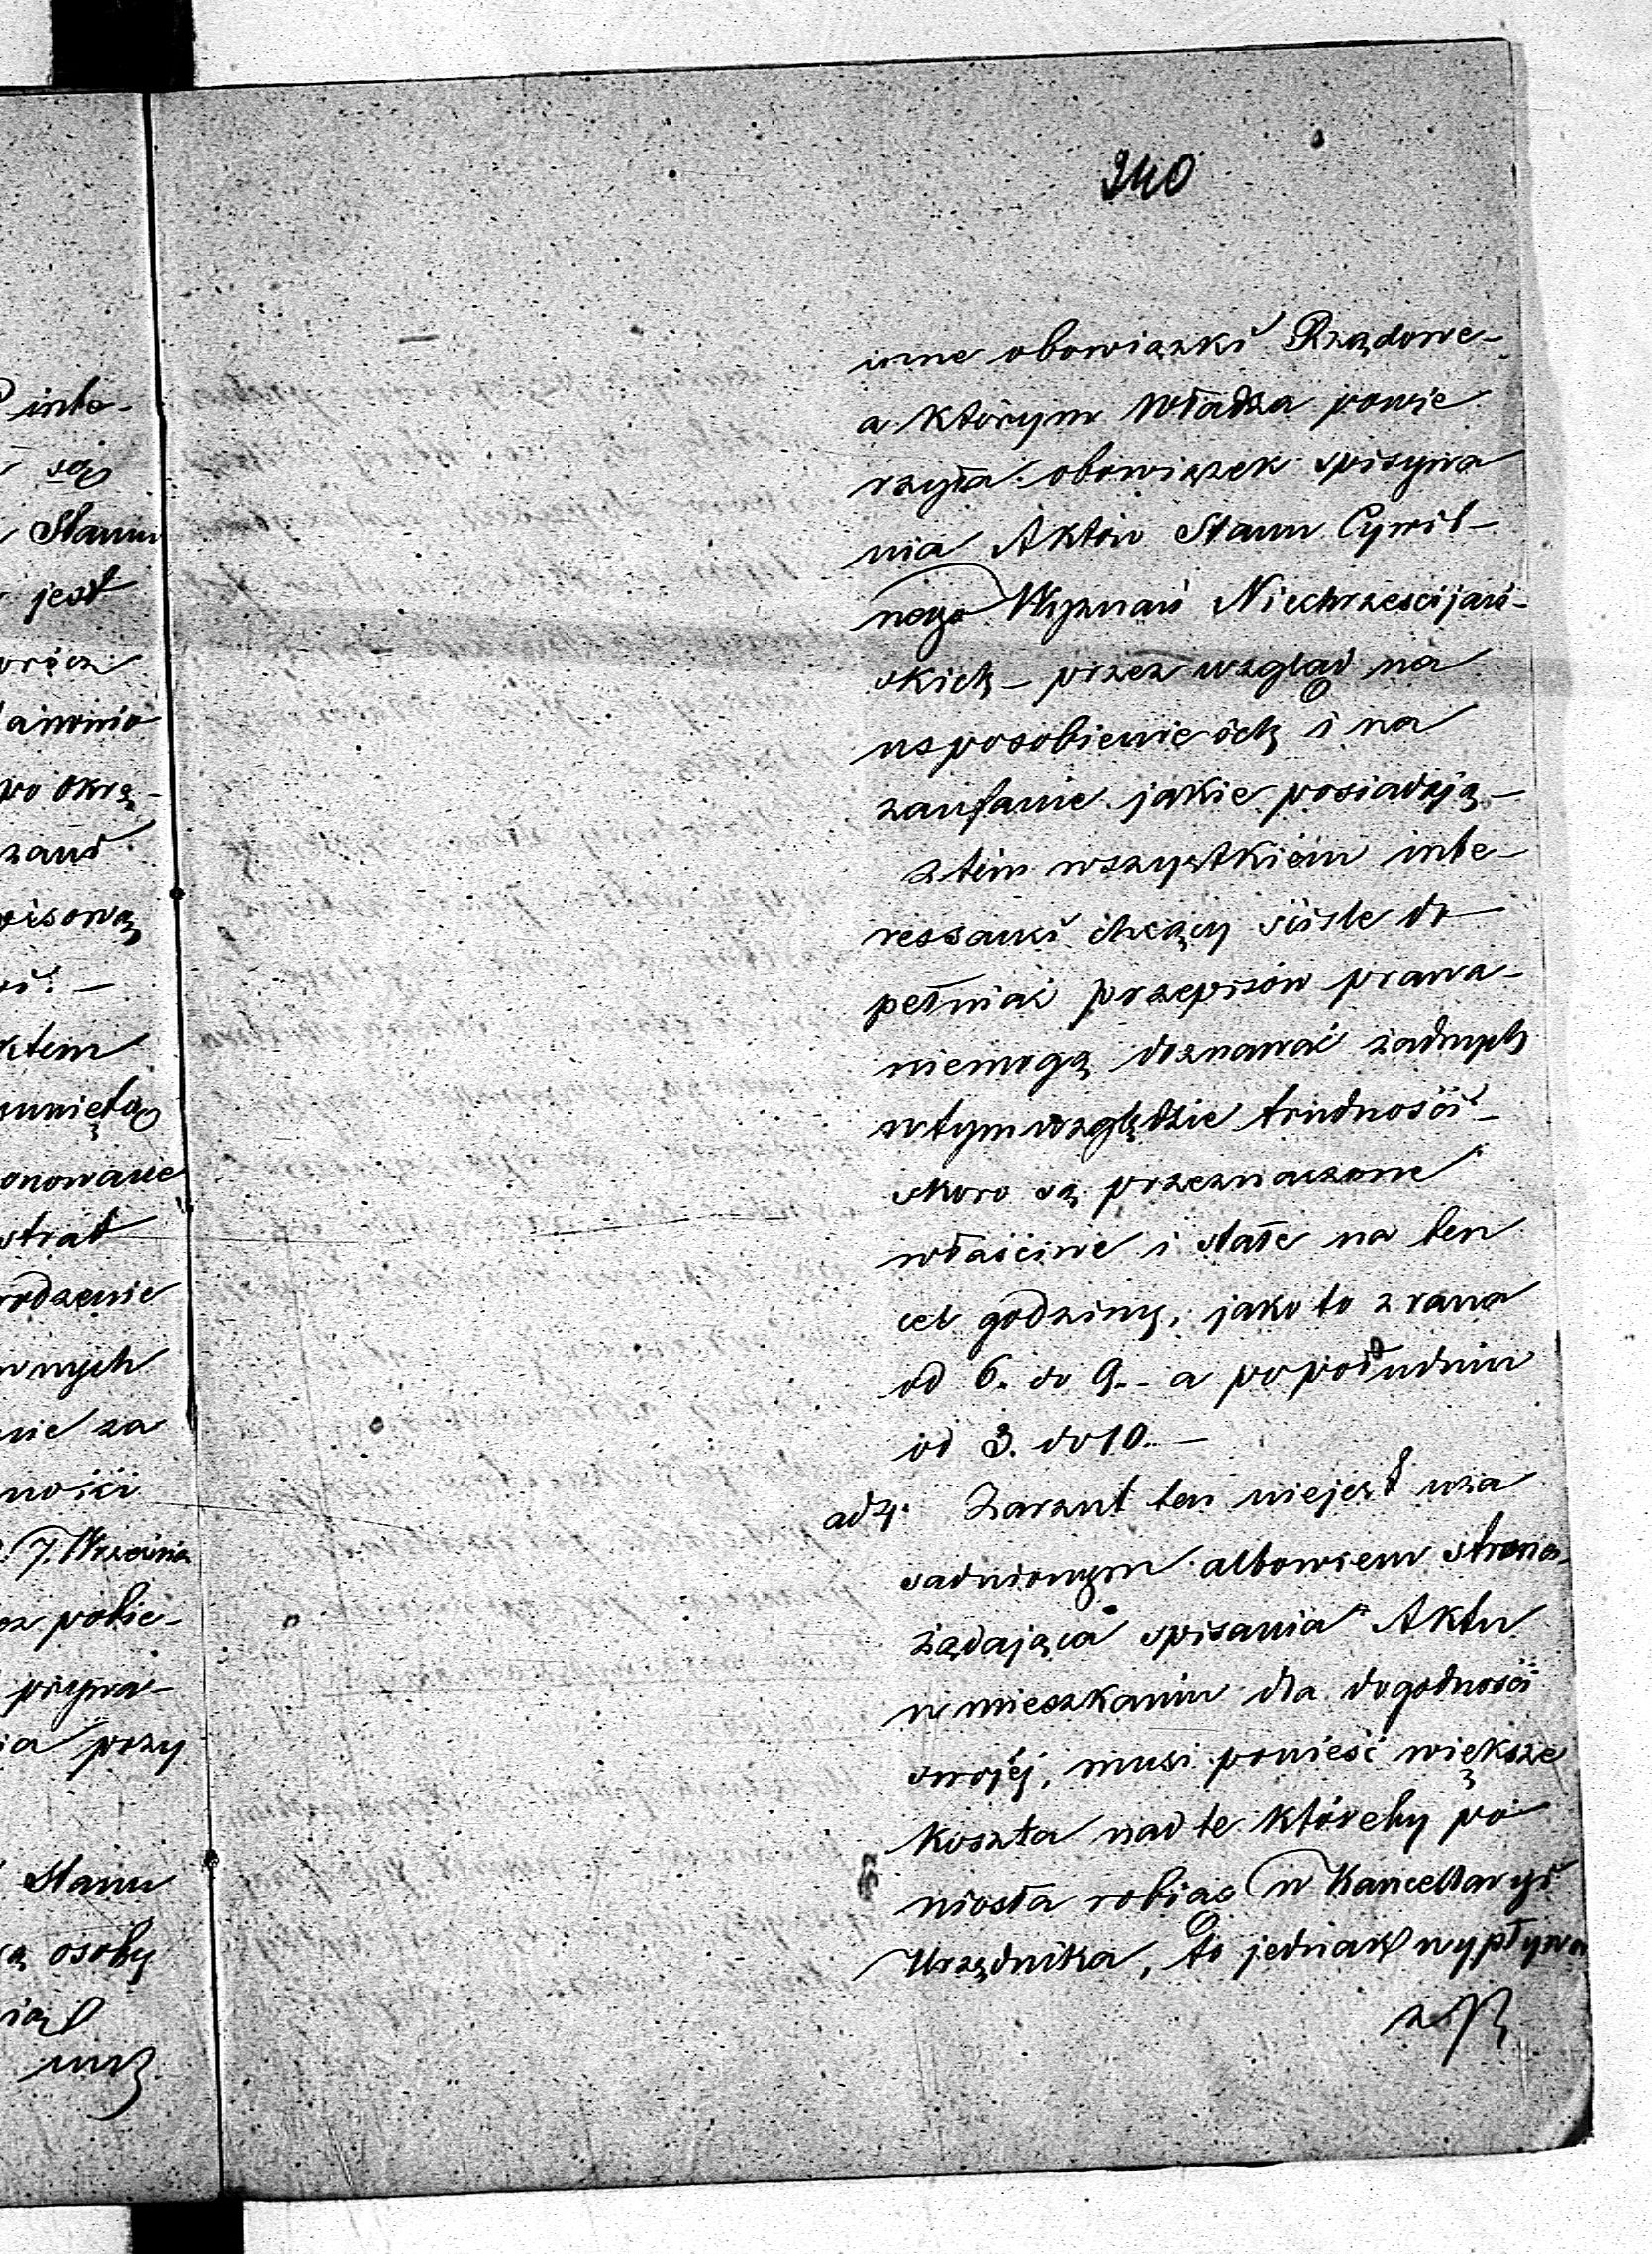 240
inne obowiązki Rządowe-
a którym Władza powie
rzyła obowiązek spisywa
nia Aktów Stanu Cywil-
nego Wyznań Niechrześcijań-
skich – przez wzgląd na
usposobienie ich i na
zaufanie jakie posiadają –
z tém wszystkiém inte-
ressanci chcący ściśle do
pełniać przepisów prawa-
niemogą doznawać żadnych
w tym względzie trudności –
skoro są przeznaczone
właściwe i stałe na ten
cel godziny, jako to z rana
od 6. do 9. – a po południu
od 3. do 10. –
ad 4. Zarzut ten niejest uza
sadnionym albowiem strona
żądająca spisania Aktu
w mieszkaniu dla dogodności
swojéj, musi ponieść większe
koszta nad te któreby po
niosła robiąc w Kancellaryi
Urzędnika, to jednak wypływa
inte-
są
Stanu
jest
po okrę-
pisową
strat
nych
nie za
ności
7. Września
pobie-
przy
Stanu
osoby